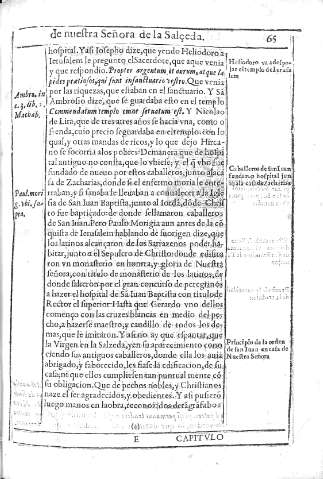 de nuestra Señora de la Salçeda. 65
hospital. Y asi Iosepho dize, que yendo Heliodoro a
Ierusalem le pregunto el Sacerdote, que aque venia
y que respondio. Propter argentum et aurum, atque la
pides pretiosos, qui sunt in sanctuario vestro. Que venia
por las riquezas, que estaban en el sanctuario. Y Sã
Ambrosio dize, que se guardaba esto en el templo
Commendatum templo amor setuatum est. Y Nicolao
de Lira, que de tres a tres años se hacia vna, como o
frenda, cuio precio se guardaba en el templo: con lo
qual, y otras mandas de ricos, y lo que dejo Hirca-
no se socorria a los pobres. De manera que de hospi
tal antiguo no consta, que lo vbiese, y el q̃ vbo fue
fundado de nuevo por estos caballeros, junto a la ca
sa de Zacharias, donde si el enfermo moria le ente-
rraban, y si sanaba le llevaban a consalecer a la Igle
sia de San Juan Baptista, junto al Iordã, dõde Chris
to fue baptiçado: de donde se llamaron caballeros
de San Juan. Pero Paulo Morigia aun antes de la cõ
quista de Jerusalem hablando de su origen dize, que
los latinos alcançaron de los Sarracenos poder ha
bitar, junto a el Sepulcro de Christo: donde edifica
ron vn monasterio en honrra, y gloria de Nuestra
señora, con titulo de monasterio de los latinos, de
donde salieron por el gran concurso de peregrinos
a hazer el hospital de Sã Iuan Baptista con titulo de
Rector el superior Hasta que Gerardo vno dellos
començo con las cruzes blancas en medio del pe-
cho, a hazerse maestro, y caudillo de todos los de-
mas, que le imitaron. Y asi no ay que espantar, que
la Virgen en la Salzeda, y en su aparecimiento como
ciendo sus antiguos caballeros, donde ella los auia
abrigado, y faborecido, les fiase la edificacion, de su
casa, ni que ellos cumpliesen tan puntual mente cõ
su obligacion. Que de pechos nobles, y Christianos
naze el ser agradecidos, y obedientes. Y asi pusierõ
luego manos en la obra, reconozidos de tã grã fabor
(o)
E CAPITVLO
Ambro. in
Machab.
Paul. mori
Heliodoro va a despo-
jar el templo de Ierusa
lem
Caballeros de sant Iuan
fundaron hospital jun
to a la casa de zacharias
Principio de la orden
de san Juan en casa de
Nuestra Señora